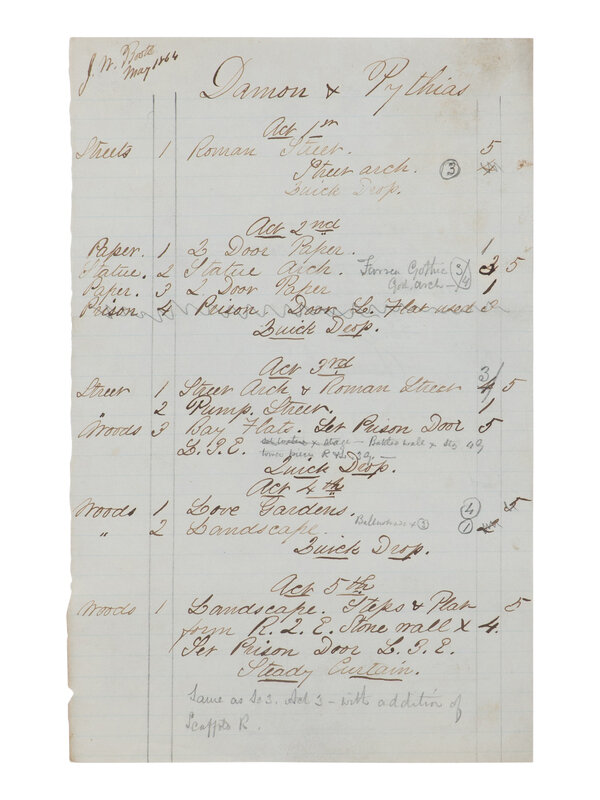 J. W. Booth
May 1864
Damon & Pythias
Act 1st
Streets 1 Roman Street. 5
Street arch. 3 4
Quick Drop.
Act 2nd
Paper. 1 2 Door Paper. 1
Statue. 2 Statue Arch. Gothic 3/4 3 5
Paper. 3 2 Door Paper arch 1
Prison 4 Prison Door L. Flat used 3
Quick Drop.
Act 3rd
3/
Street 1 Street Arch & Roman Street 4 5
" 2 Pump. Street. 1
Woods 3 Bay Flats. Set Prison Door 5
L. 3 E. x stage - wall x
R
Quick Drop.
Act 4th
Woods 1 Love Gardens. 4 5
" 2 Landscape. 3 1
Quick Drop.
Act 5th
Woods 1 Landscape. Steps & Plat 5
form R. 2. E. Stone wall x 4.
Set Prison Door L. 3 E.
Steady Curtain.
Same as Sc 3. Act 3 - with addition of
Scaffold R.